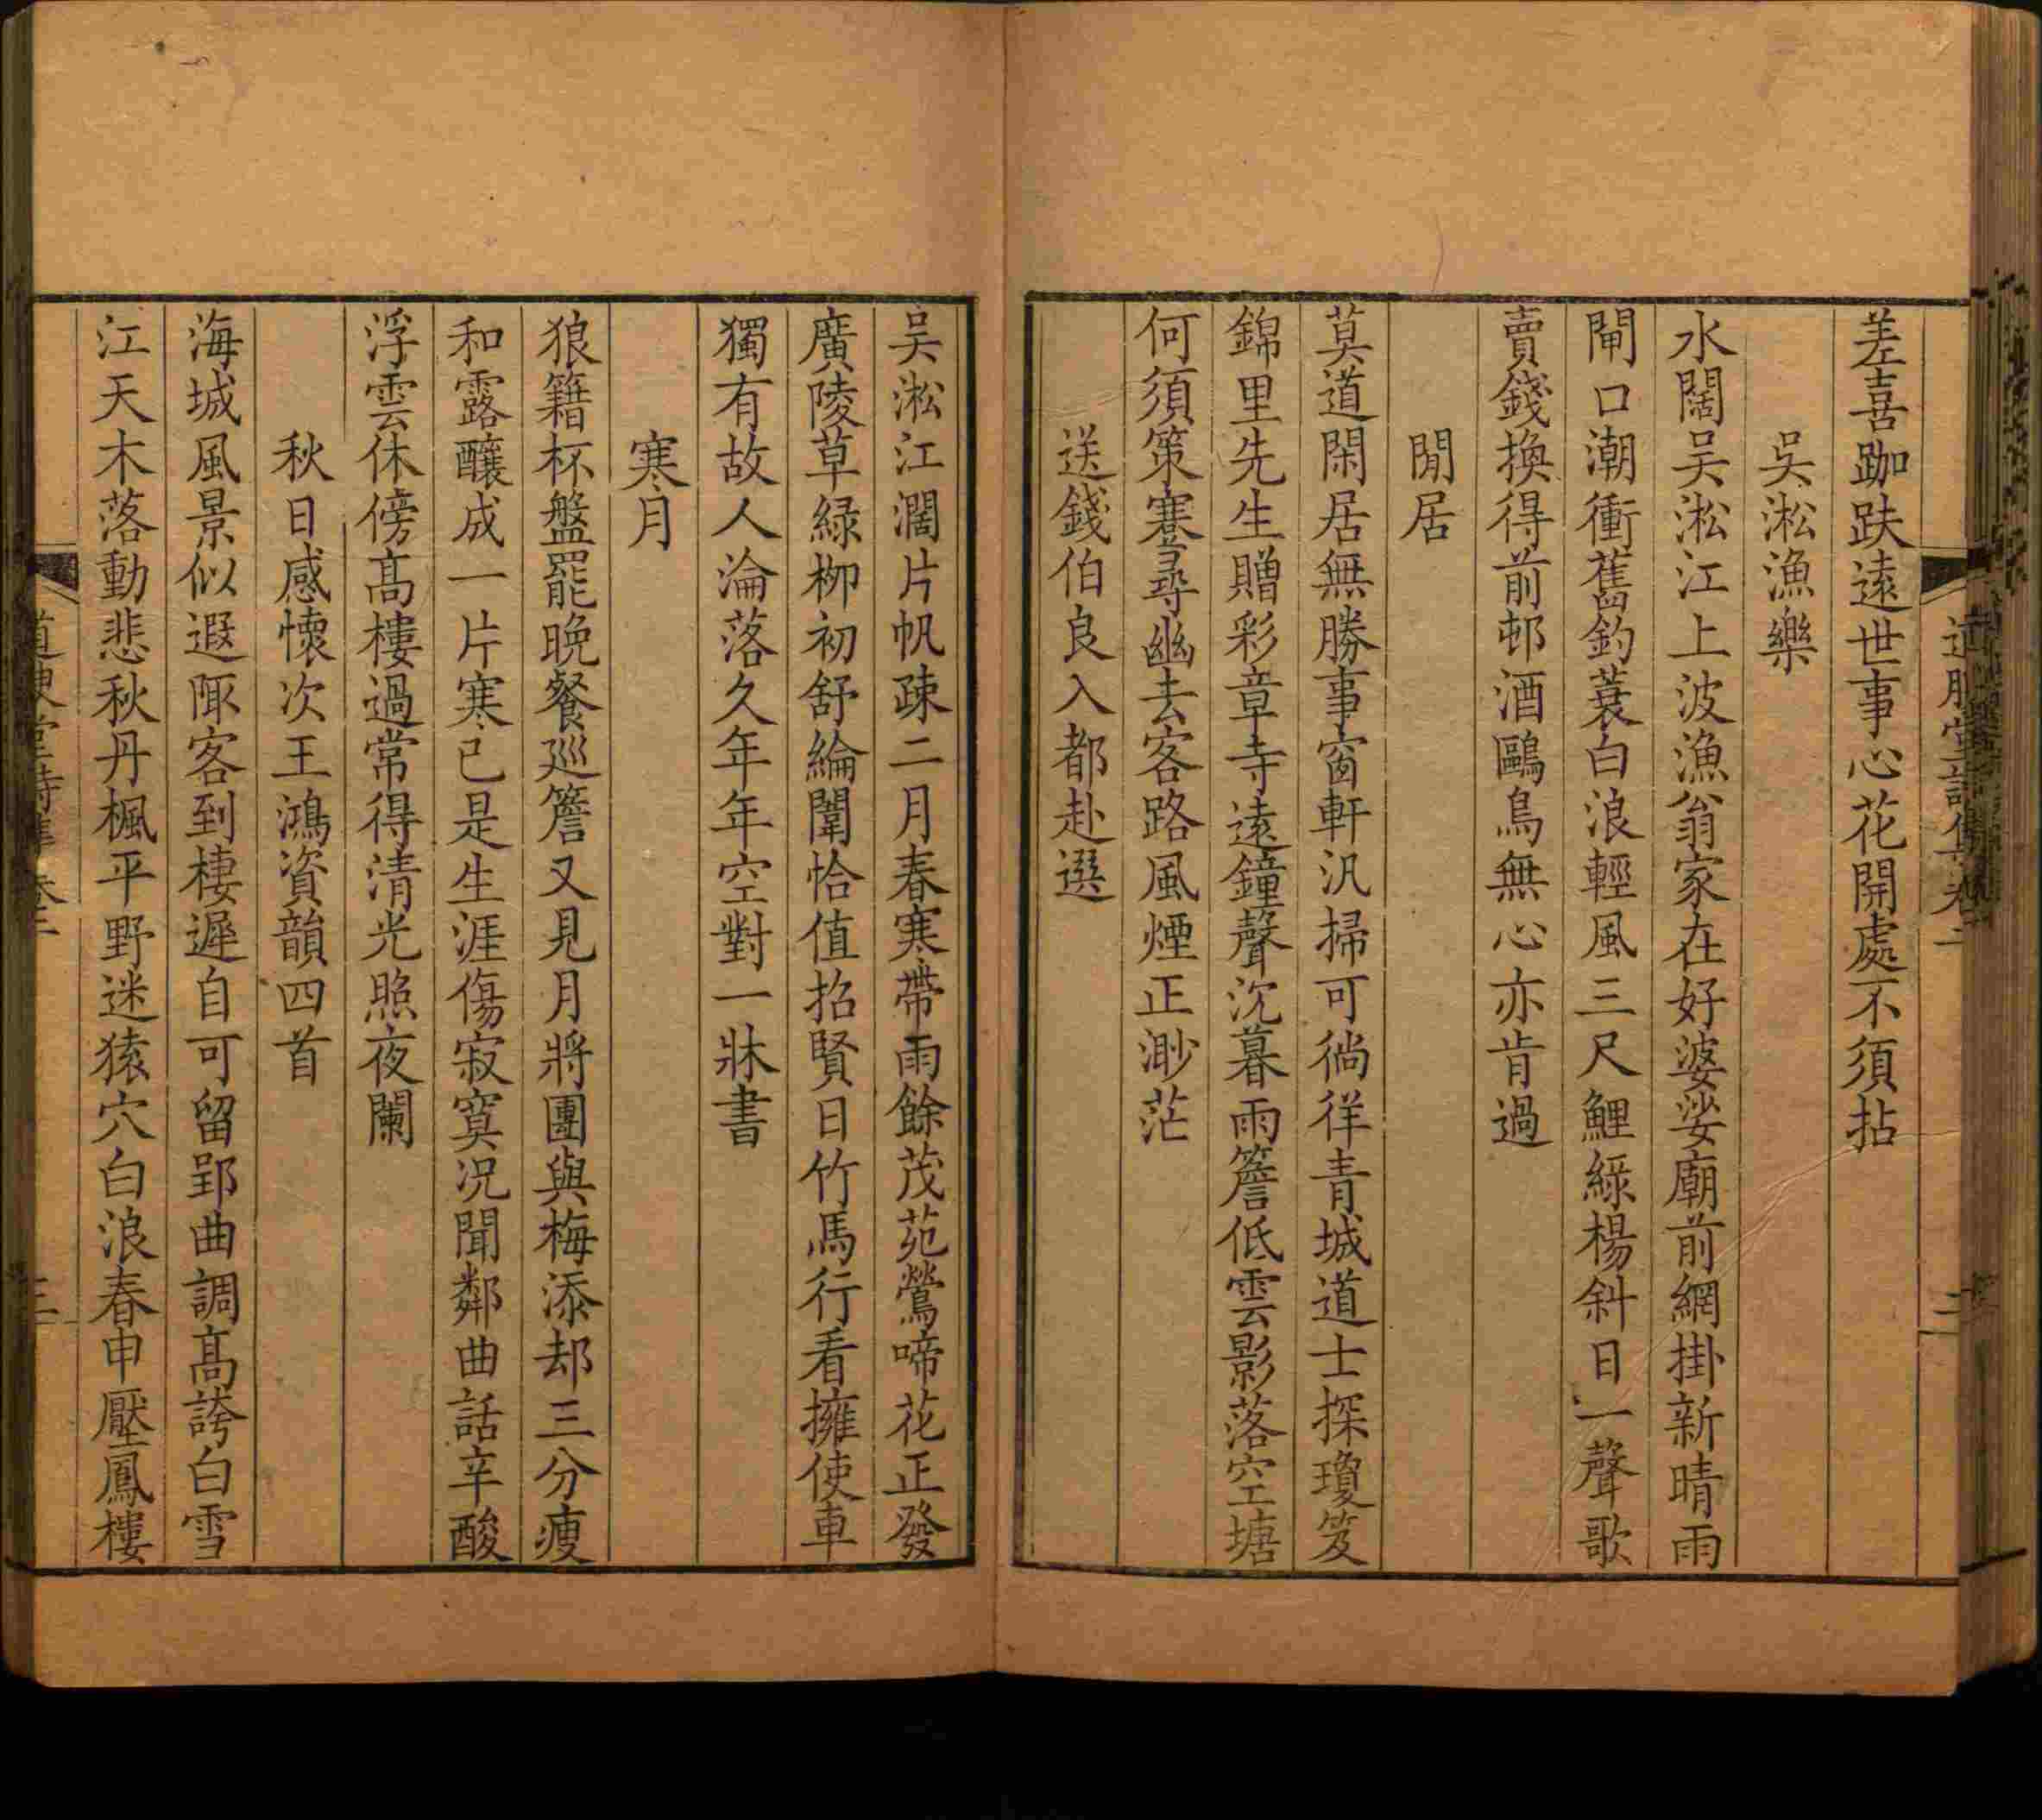 差喜跏趺遠世事心花開處不須拈
吳淞漁樂
水闊吳淞江上波漁翁家在好婆娑廟前網掛新晴雨
閘口潮衝舊釣蓑白浪輕風三尺鯉綠楊斜日一聲歌
賣錢換得前邨酒鷗鳥無心亦肯過
閒居
莫道閑居無勝事窗軒汎掃可徜徉青城道士探瓊笈
錦里先生贈彩章寺遠鐘聲沉暮雨簷低雲影落空塘
何須策蹇尋幽去客路風煙正渺茫
送錢伯良入都赴選
吳淞江濶片帆疎二月春寒帶雨餘茂苑鶯啼花正發
廣陵草綠柳初舒綸闈恰值招賢日竹馬行看擁使車
獨有故人淪落久年年空對一牀書
寒月
狼籍杯盤罷晚餐巡簷又見月將團與梅添却三分瘦
和露釀成一片寒已是生涯傷寂寞况聞鄰曲話辛酸
浮雲休傍高樓過常得清光照夜闌
秋日感懷次王鴻資韻四首
海城風景似遐陬客到棲遲自可留郢曲調高誇白雪
江天木落動悲秋丹楓平野迷猿穴白浪春申壓鳳樓